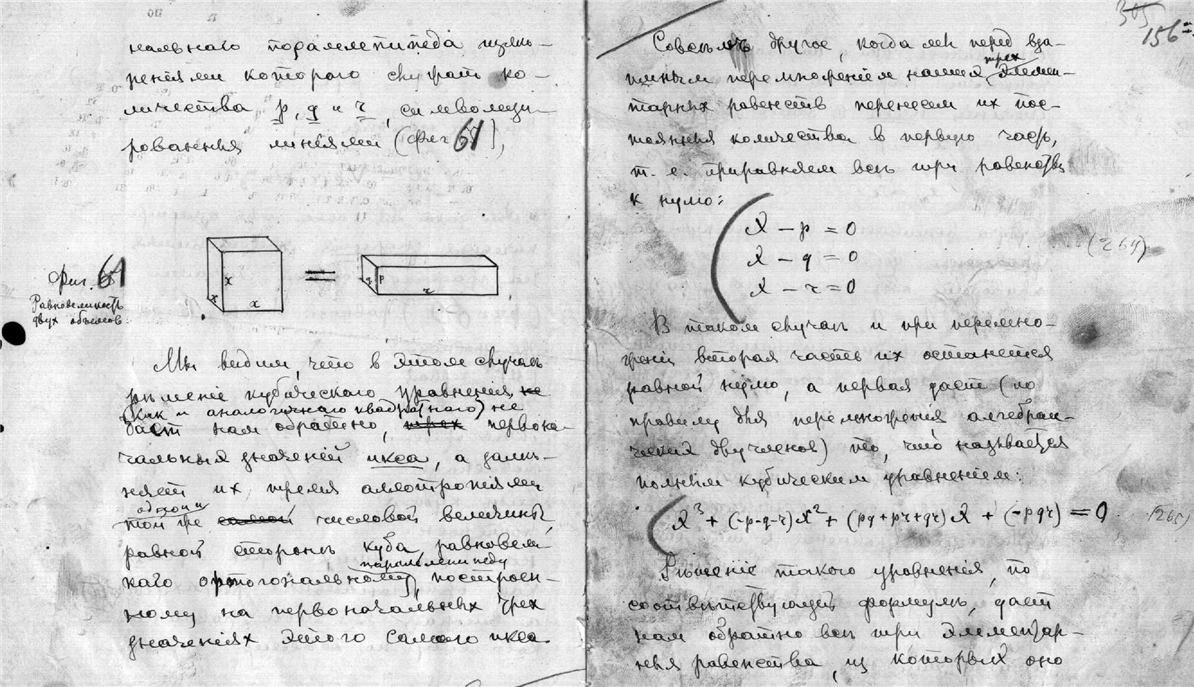 нальнаго параллепипеда измѣ-
реніями котораго служатъ ко-
личества p, q и r, символизи-
рованныя линіями (фиг 61),
фиг. 61
Равновеликость
двухъ объемов.
x
x
x
=
q
p
r
Мы видим, что в этом случаѣ
рѣшеніе кубическаго уравненія
(как и аналогичнаго квадратнаго) не
дает нам обратно, первона-
чальныя значенія икса, а замѣ-
няет их тремя аллотропіями
одной и
той же числовой величины,
равной сторонѣ куба, равновели-
параллепипеду
каго ортогональному, построен-
ному на первоначальных трех
значеніях этого самаго икса.
305
156
Совсѣмъ другое, когда мы перед вза-
трех
имным перемноженіем наших элемен-
тарных равенств перенесем их пос-
тоянныя количества в первую часть,
т. е. приравняем всѣ три равенства
к нулю:
X − p = 0
X − q = 0
X − r = 0
(264)
В таком случаѣ и при перемно-
женіи вторая часть их останется
равной нулю, а первая даст (по
правилу для перемноженія алгебраи-
ческих двучленов) то, что называется
полным кубическим уравненіем:
X³ + (-p-q-r)X² + (pq+pr+qr)X + (-pqr) = 0
(265)
Рѣшеніе такого уравненія, по
соотвѣтствующей формулѣ, дает
нам обратно всѣ три элементар-
ныя равенства, из которых оно